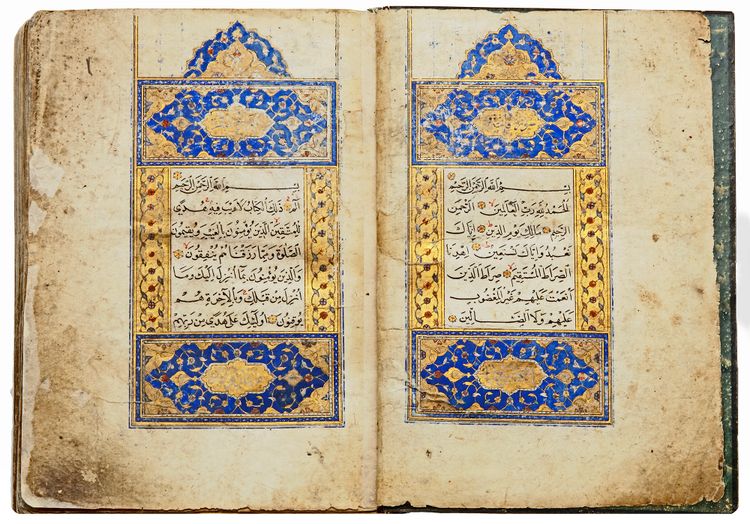 بِسْمِ اللَّهِ الرَّحْمَنِ الرَّحِيمِ
الْحَمْدُ لِلَّهِ رَبِّ الْعَالَمِينَ الرَّحْمَنِ
الرَّحِيمِ مَالِكِ يَوْمِ الدِّينِ إِيَّاكَ
نَعْبُدُ وَإِيَّاكَ نَسْتَعِينُ اهْدِنَا
الصِّرَاطَ الْمُسْتَقِيمَ صِرَاطَ الَّذِينَ
أَنْعَمْتَ عَلَيْهِمْ غَيْرِ الْمَغْضُوبِ
عَلَيْهِمْ وَلَا الضَّالِّينَ
بِسْمِ اللَّهِ الرَّحْمَنِ الرَّحِيمِ
الم ذَلِكَ الْكِتَابُ لَا رَيْبَ فِيهِ هُدًى
لِلْمُتَّقِينَ الَّذِينَ يُؤْمِنُونَ بِالْغَيْبِ وَيُقِيمُونَ
الصَّلَوةَ وَمِمَّا رَزَقْنَاهُمْ يُنْفِقُونَ
وَالَّذِينَ يُؤْمِنُونَ بِمَا أُنْزِلَ إِلَيْكَ وَمَا
أُنْزِلَ مِنْ قَبْلِكَ وَبِالْآخِرَةِ هُمْ
يُوقِنُونَ أُولَئِكَ عَلَى هُدًى مِنْ رَبِّهِمْ